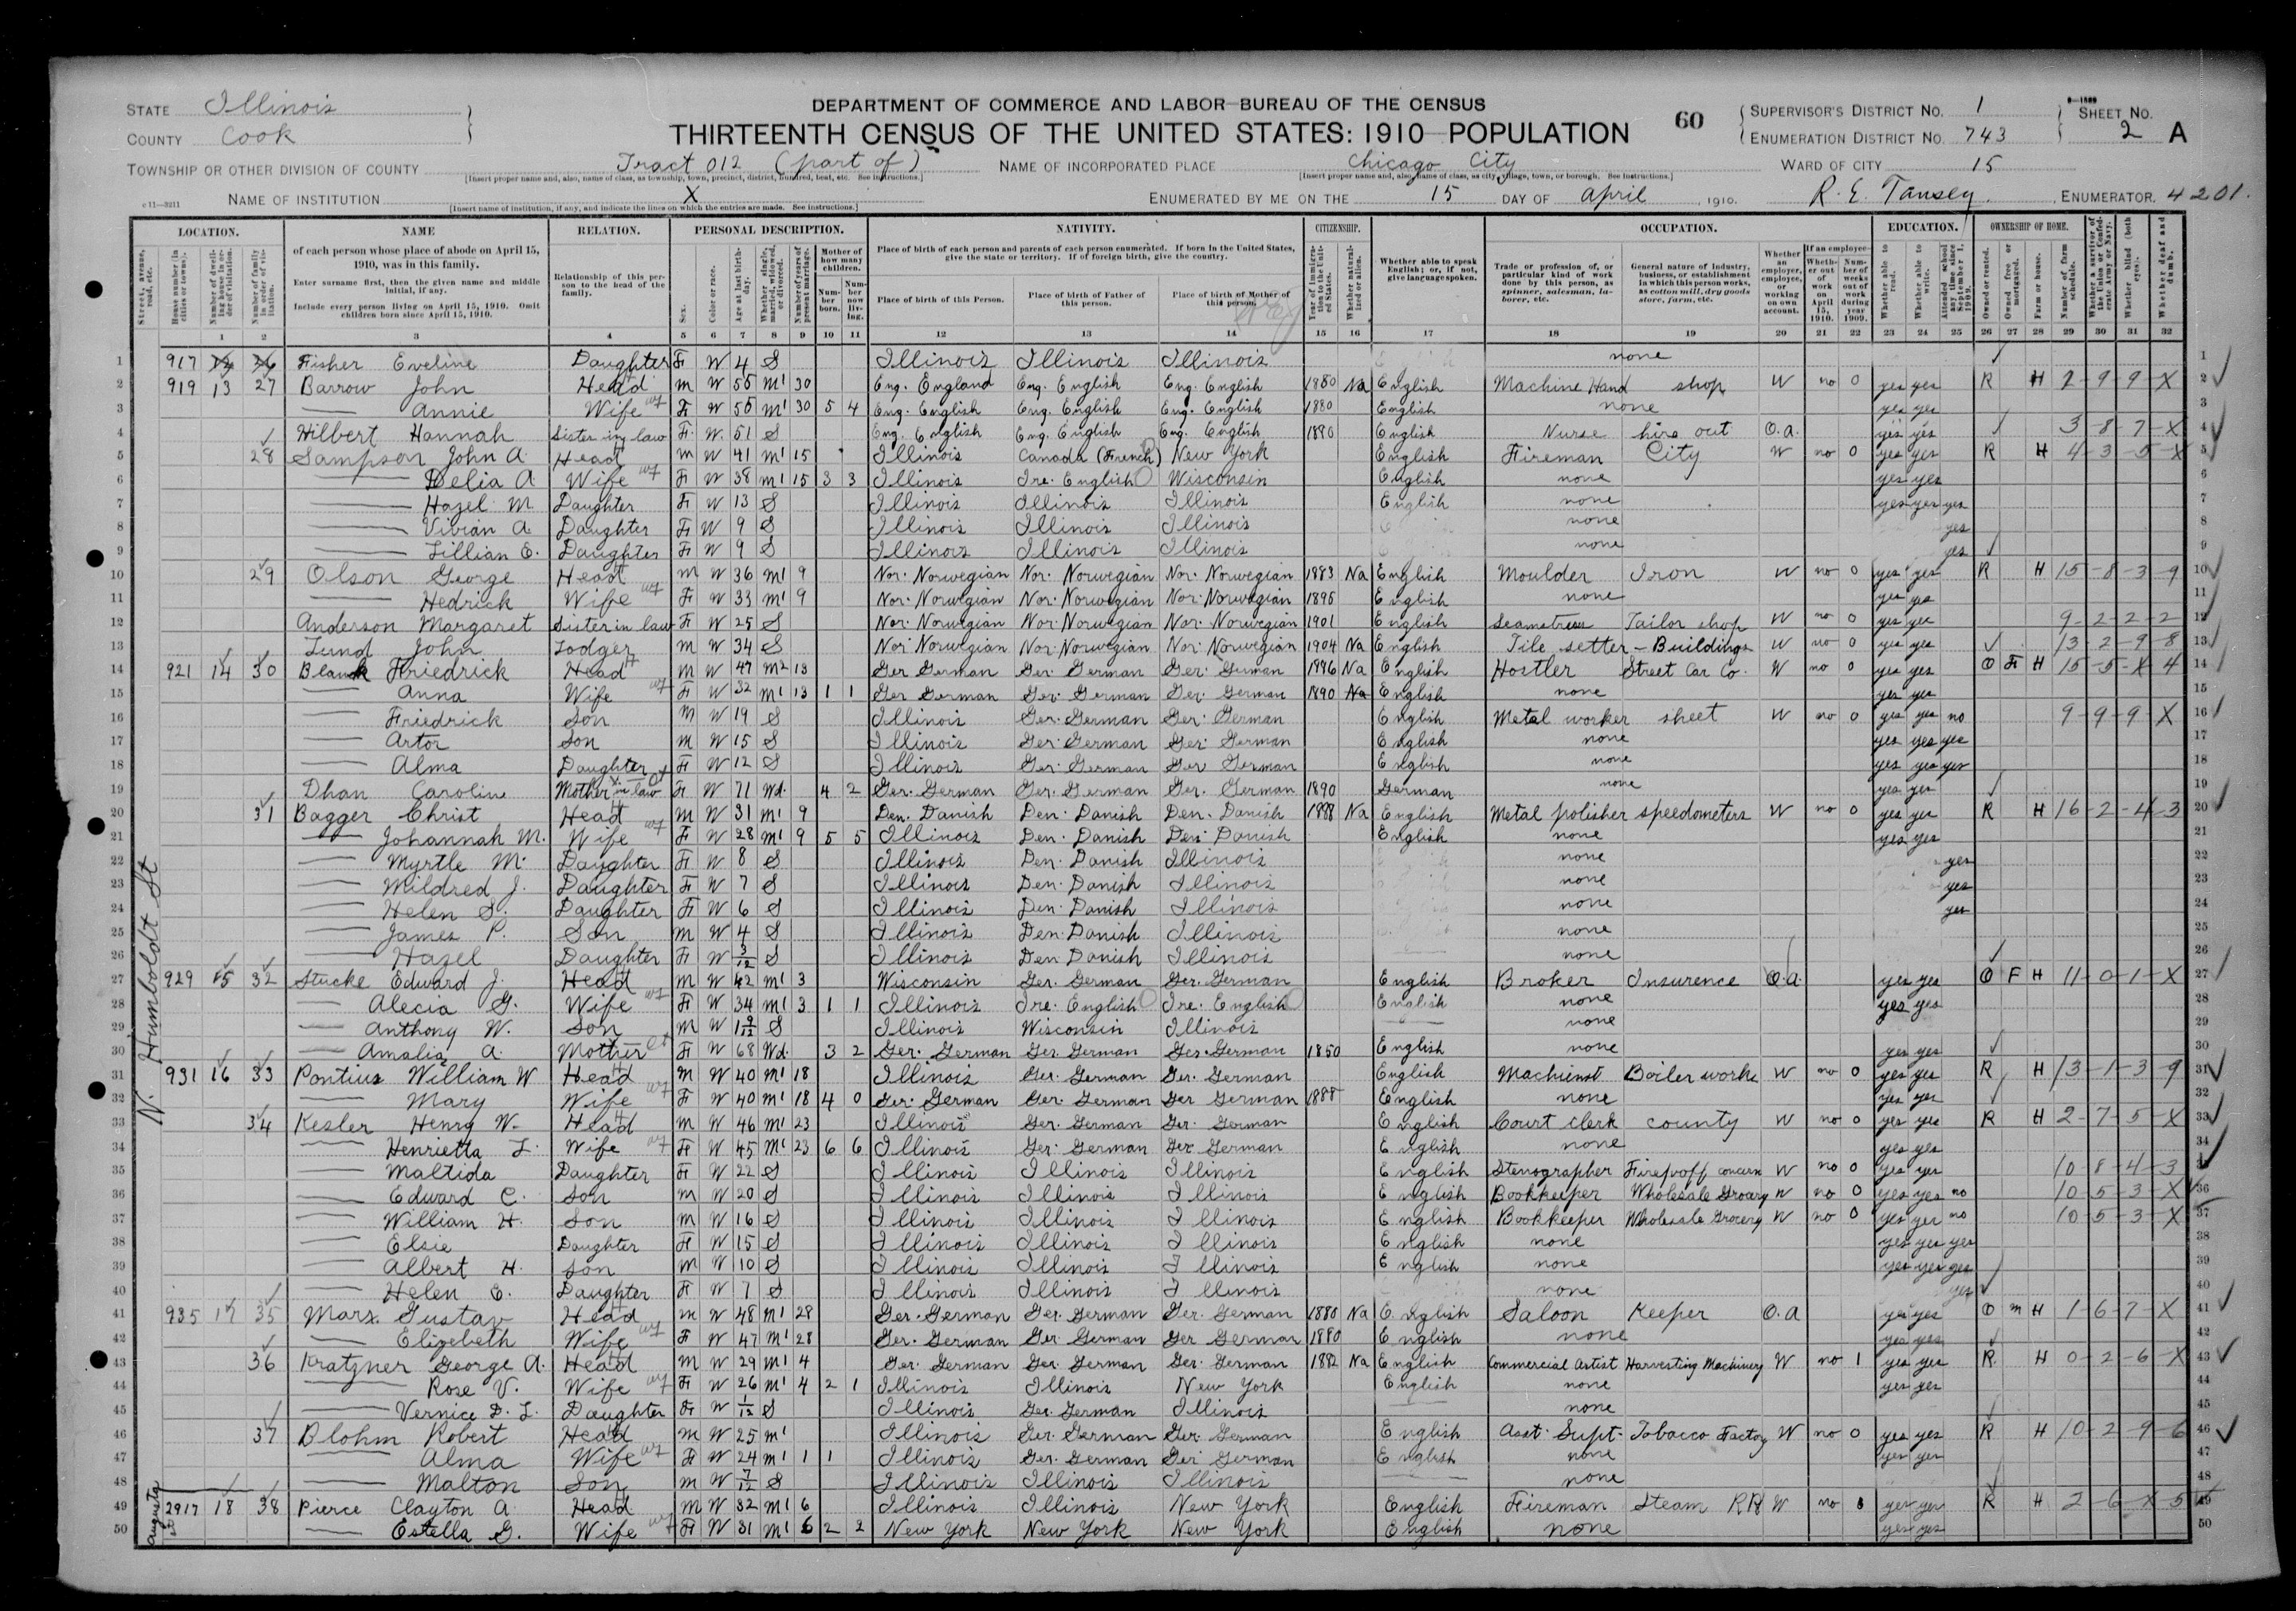 STATE Illinois
COUNTY Cook
DEPARTMENT OF COMMERCE AND LABOR—BUREAU OF THE CENSUS
THIRTEENTH CENSUS OF THE UNITED STATES: 1910—POPULATION
60
SUPERVISOR'S DISTRICT NO. 1
ENUMERATION DISTRICT NO. 743
SHEET NO. 2 A
TOWNSHIP OR OTHER DIVISION OF COUNTY Tract 012 (part of)
NAME OF INCORPORATED PLACE Chicago City
WARD OF CITY 15
NAME OF INSTITUTION X
ENUMERATED BY ME ON THE 15 DAY OF April, 1910. R. E. Tansey, ENUMERATOR. 4201.
LOCATION. NAME RELATION. PERSONAL DESCRIPTION. NATIVITY. CITIZENSHIP. OCCUPATION. EDUCATION. OWNERSHIP OF HOME.
N. Humboldt St
1 917 Fisher Eveline Daughter F W 4 S Illinois Illinois Illinois none
2 919 13 27 Barrow John Head m W 55 m1 30 Eng. England Eng. English Eng. English 1880 Na English Machine Hand shop W no 0 yes yes R H 2-9-9-X
3 Annie Wife F W 55 m1 30 5 4 Eng. English Eng. English Eng. English 1880 English none yes yes
4 Hilbert Hannah Sister in law F W 51 S Eng. English Eng. English Eng. English 1890 English Nurse hire out O.a. yes yes 3-8-7-X
5 28 Sampson John A Head m W 41 m1 15 Illinois Canada (French) New York English Fireman City W no 0 yes yes R H 4-3-5-X
6 Delia A Wife F W 38 m1 15 3 3 Illinois Ire. English Wisconsin English none yes yes
7 Hazel M. Daughter F W 13 S Illinois Illinois Illinois English none yes yes yes
8 Vivian A Daughter F W 9 S Illinois Illinois Illinois none yes
9 Lillian E. Daughter F W 9 S Illinois Illinois Illinois none yes
10 29 Olson George Head m W 36 m1 9 Nor. Norwegian Nor. Norwegian Nor. Norwegian 1883 Na English Moulder Iron W no 0 yes yes R H 15-8-3-9
11 Hedrick Wife F W 33 m1 9 Nor. Norwegian Nor. Norwegian Nor. Norwegian 1895 English none yes yes
12 Anderson Margaret Sister in law F W 25 S Nor. Norwegian Nor. Norwegian Nor. Norwegian 1901 English Seamstress Tailor shop W no 0 yes yes 9-2-2-2
13 Lund John Lodger m W 34 S Nor. Norwegian Nor. Norwegian Nor. Norwegian 1904 Na English Tile setter - Buildings W no 0 yes yes 13-2-9-8
14 921 14 30 Blank Friedrick Head m W 47 m2 13 Ger German Ger. German Ger. German Na English Hostler Street Car Co. W no 0 yes yes O F H 15-5-X-4
15 Anna Wife F W 32 m1 13 1 1 Ger German Ger. German Ger. German 1890 Na English none yes yes
16 Friedrick Son m W 19 S Illinois Ger. German Ger. German English Metal worker sheet W no 0 yes yes no 9-9-9-X
17 Artor Son m W 15 S Illinois Ger. German Ger. German English none yes yes yes
18 Alma Daughter F W 12 S Illinois Ger. German Ger German English none yes yes yes
19 Dhan Caroline Mother in law F W 71 Wd. 4 2 Ger. German Ger. German Ger. German 1890 German none yes yes
20 31 Bagger Christ Head m W 31 m1 9 Den. Danish Den. Danish Den. Danish 1888 Na English Metal polisher speedometers W no 0 yes yes R H 16-2-4-3
21 Johannah M. Wife F W 28 m1 9 5 5 Illinois Den. Danish Den. Danish English none yes yes
22 Myrtle M. Daughter F W 8 S Illinois Den. Danish Illinois none yes
23 Mildred J. Daughter F W 7 S Illinois Den. Danish Illinois none yes
24 Helen S. Daughter F W 6 S Illinois Den. Danish Illinois none yes
25 James P. Son m W 4 S Illinois Den. Danish Illinois none
26 Hazel Daughter F W 3/12 S Illinois Den Danish Illinois none
27 929 15 32 Stucke Edward J. Head m W 42 m1 3 Wisconsin Ger. German Ger. German English Broker Insurence O.a. yes yes O F H 11-0-1-X
28 Alecia G. Wife F W 34 m1 3 1 1 Illinois Ire. English Ire. English English none yes yes
29 Anthony W. Son m W 1 9/12 S Illinois Wisconsin Illinois none
30 Amalia A. Mother F W 68 Wd. 3 2 Ger. German Ger. German Ger. German 1850 English none yes yes
31 931 16 33 Pontius William W Head m W 40 m1 18 Illinois Ger. German Ger. German English Machienst Boiler works W no 0 yes yes R H 13-1-3-9
32 Mary Wife F W 40 m1 18 4 0 Ger. German Ger. German Ger German 1888 English none yes yes
33 34 Kesler Henry W. Head m W 46 m1 23 Illinois Ger. German Ger. German English Court clerk county W no 0 yes yes R H 2-7-5-X
34 Henrietta L. Wife F W 45 m1 23 6 6 Illinois Ger. German Ger German English none yes yes
35 Maltida Daughter F W 22 S Illinois Illinois Illinois English Stenographer Firepoff concern W no 0 yes yes 10-8-4-3
36 Edward C. Son m W 20 S Illinois Illinois Illinois English Bookkeeper Wholesale Grocery W no 0 yes yes no 10-5-3-X
37 William H. Son m W 16 S Illinois Illinois Illinois English Bookkeeper Wholesale Grocery W no 0 yes yes no 10-5-3-X
38 Elsie Daughter F W 15 S Illinois Illinois Illinois English none yes yes yes
39 Albert H. Son m W 10 S Illinois Illinois Illinois English none yes yes yes
40 Helen E. Daughter F W 7 S Illinois Illinois Illinois none yes
41 935 17 35 Marx Gustav Head m W 48 m1 28 Ger. German Ger. German Ger. German 1880 Na English Saloon Keeper O.a yes yes O m H 1-6-7-X
42 Elizebeth Wife F W 47 m1 28 Ger. German Ger. German Ger German 1880 English none yes yes
43 36 Kratzner George A. Head m W 29 m1 4 Ger. German Ger. German Ger. German 1882 Na English Commercial Artist Harvesting Machinery W no 1 yes yes R. H 0-2-6-X
44 Rose V. Wife F W 26 m1 4 2 1 Illinois Illinois New York English none yes yes
45 Vernice D. L. Daughter F W 1/12 S Illinois Ger. German Illinois none
46 37 Blohm Robert Head m W 25 m1 Illinois Ger. German Ger. German English Asst. Supt. Tobacco Factory W no 0 yes yes R H 10-2-9-6
47 Alma Wife F W 24 m1 1 1 Illinois Ger. German Ger German English none yes yes
48 Malton Son m W 7/12 S Illinois Illinois Illinois none
Augusta
49 2917 18 38 Pierce Clayton A. Head m W 32 m1 6 Illinois Illinois New York English Fireman Steam RR W no yes yes R H 2-6-X-5
50 Estella G. Wife F W 31 m1 6 2 2 New York New York New York English none yes yes